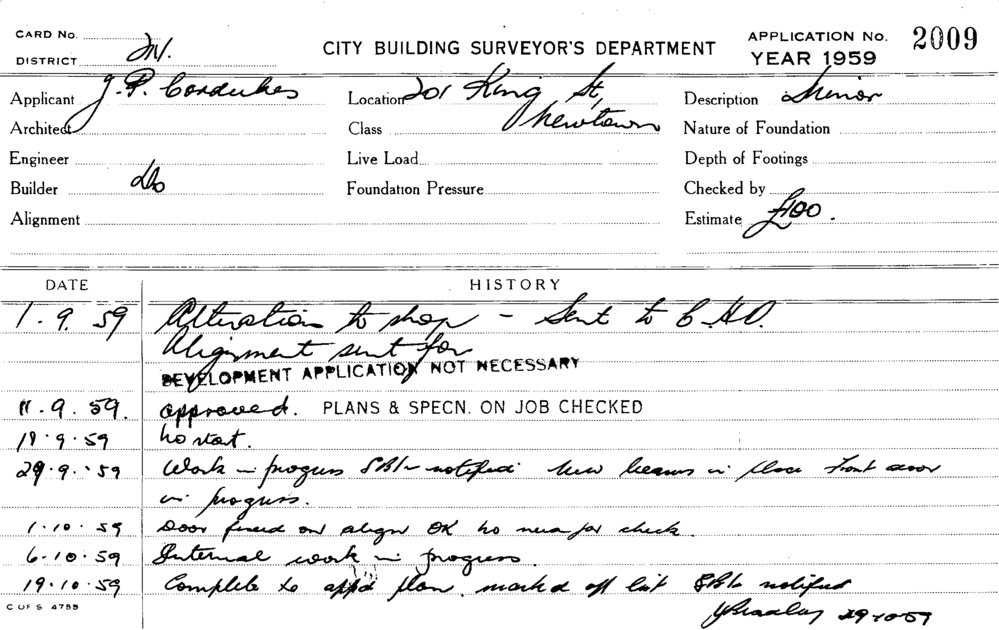 CARD No.
DISTRICT
CITY BUILDING SURVEYOR'S DEPARTMENT
APPLICATION No. 2009
YEAR 1959
Applicant J. P. Cordukes
Location 201 King St,
Newtown
Description Minor
Architect
Class
Nature of Foundation
Engineer
Live Load
Depth of Footings
Builder do
Foundation Pressure
Checked by
Alignment
Estimate £100.
DATE HISTORY
1.9.59 Alteration to shop - Sent to C.H.O.
Alignment sent for
DEVELOPMENT APPLICATION NOT NECESSARY
11.9.59. approved. PLANS & SPECN. ON JOB CHECKED
18.9.59 No start.
29.9.59 Work in progress notified New beams in place Front door
in progress.
1.10.59 Door fixed on align OK no check
6.10.59 Internal work in progress
19.10.59 Complete to appd plan. marked off list notified
29-10-59
C OF S 4755